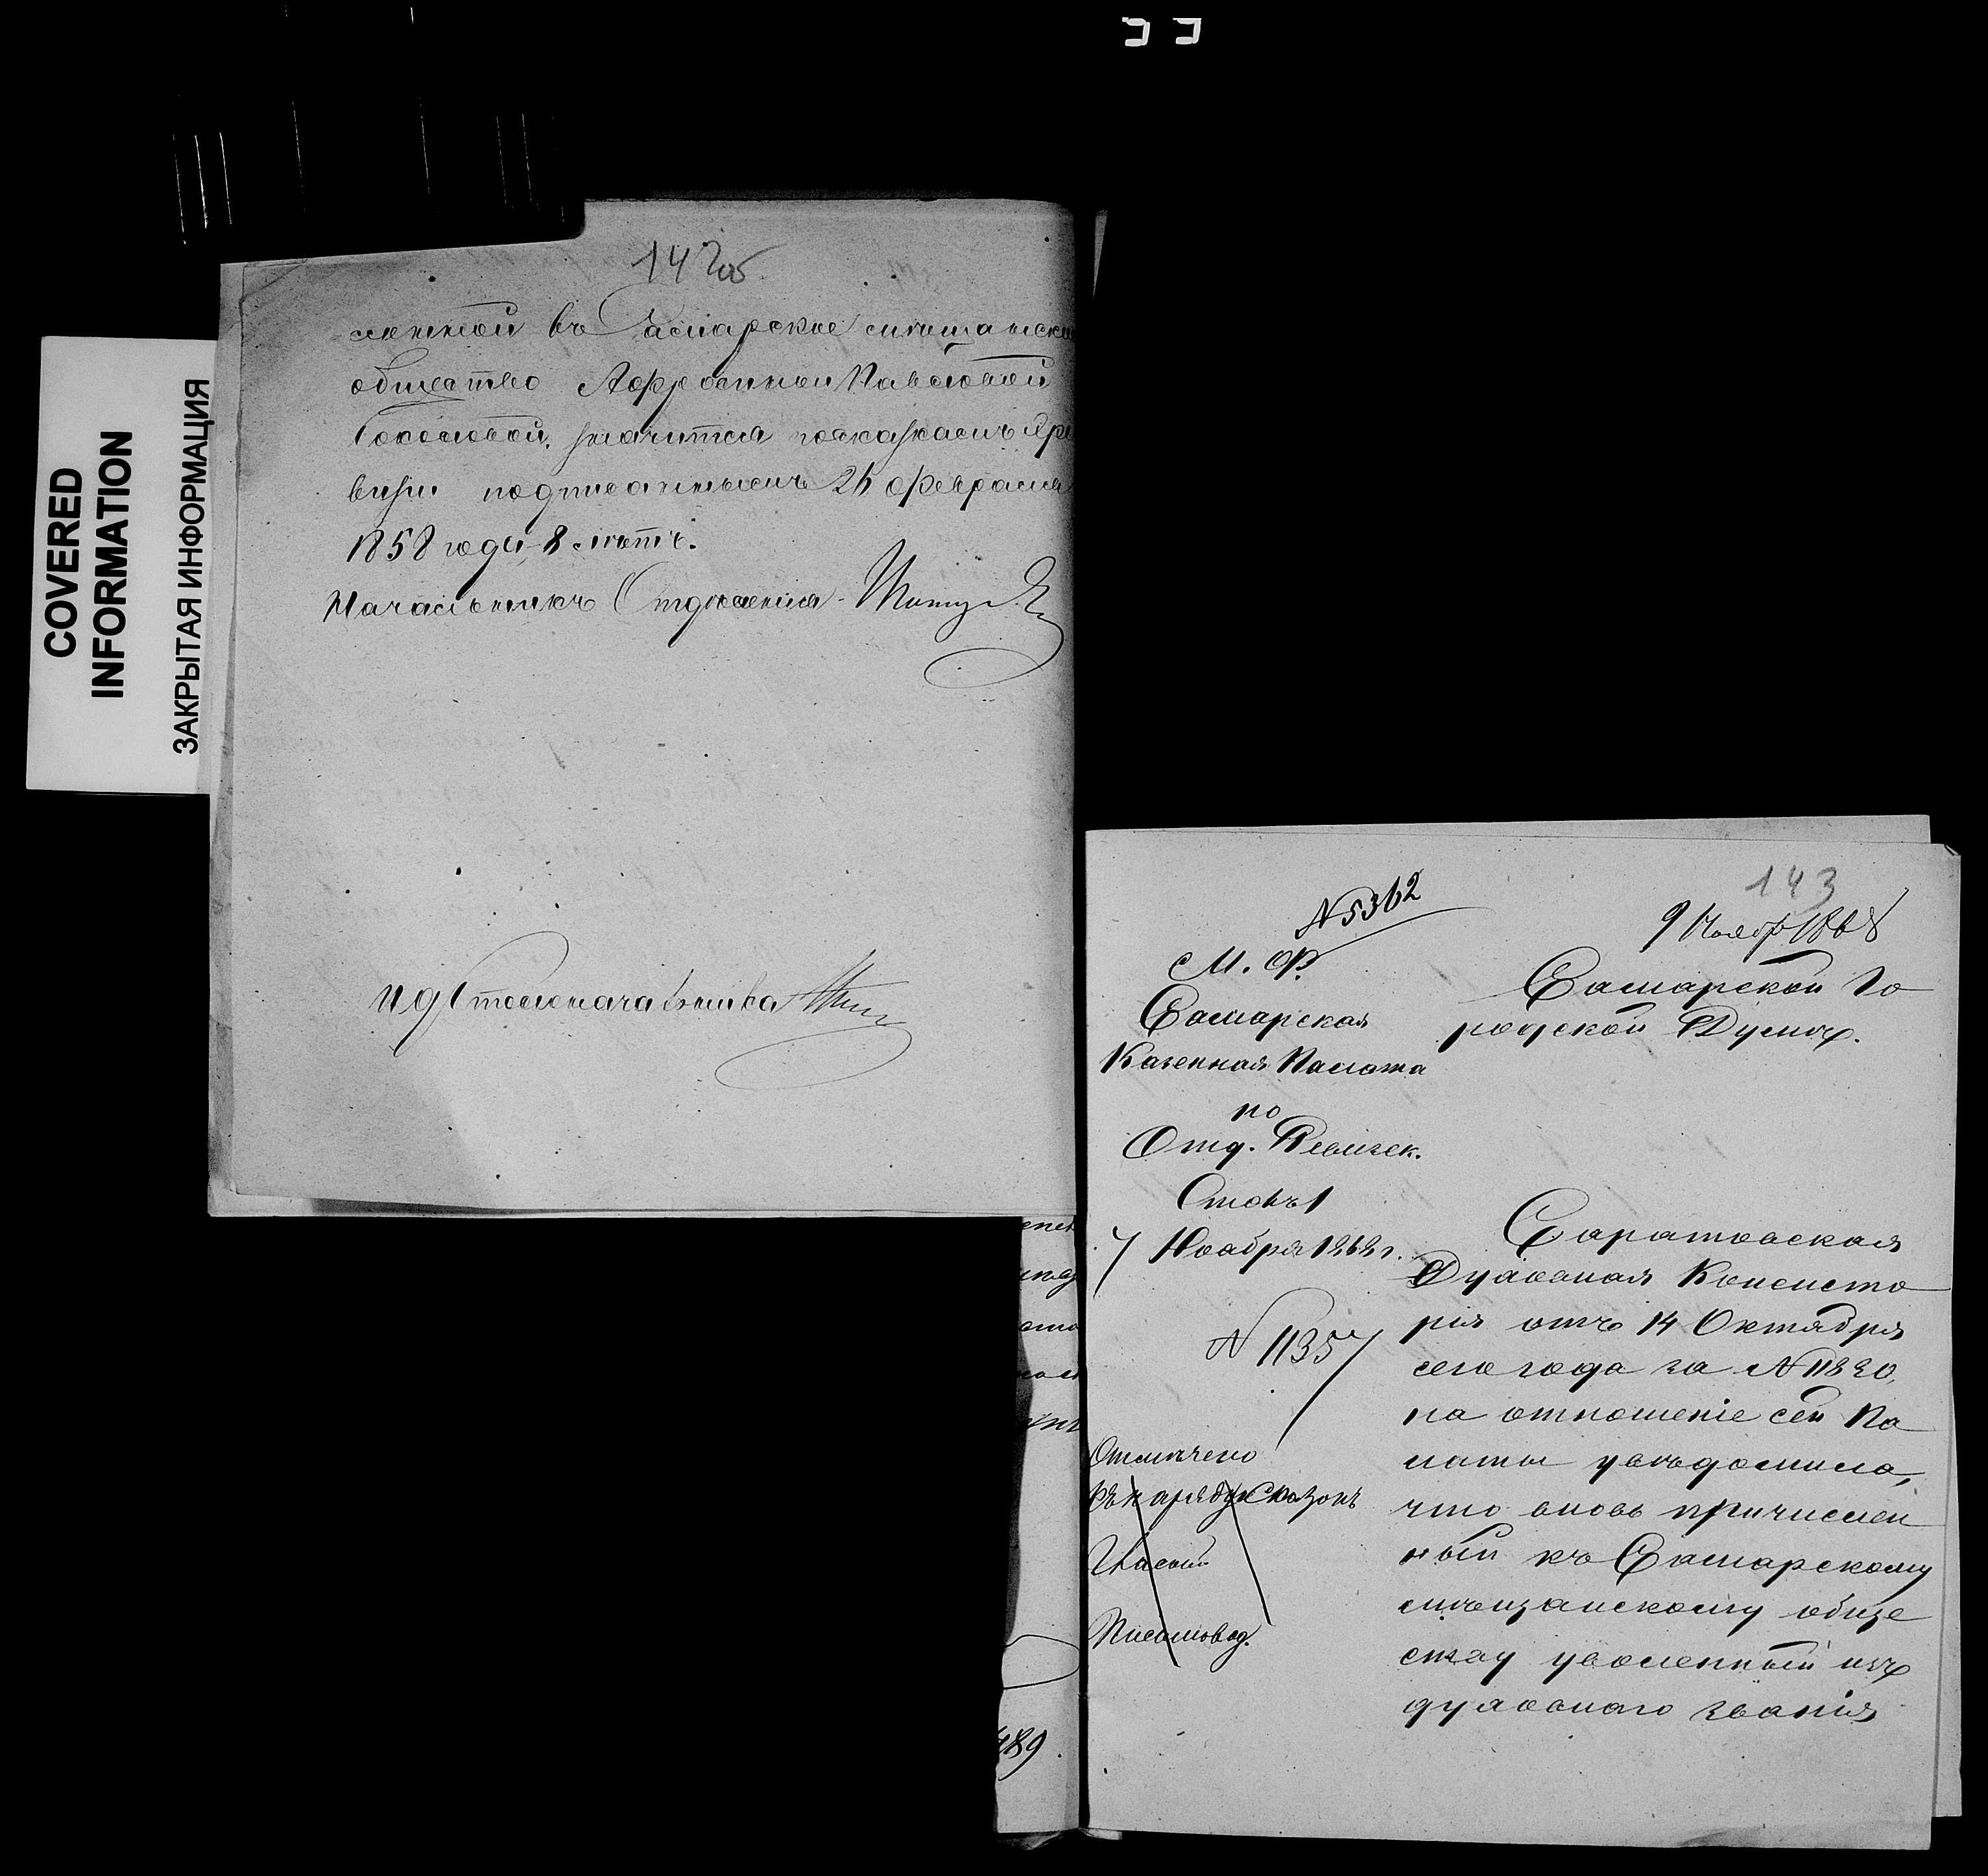 COVERED
INFORMATION
ЗАКРЫТАЯ ИНФОРМАЦИЯ
142об
сленной въ Самарское мѣщанско
общество Афросиньи Павловой
Соколовой, значится по сказкамъ
визіи подписаннымъ 26 февраля
1858 года, 8 лѣтъ.
Начальникъ Отдѣленія
И д Столоначальника
143
№ 5362
9 Ноябр 1868
М. Ф.
Самарская
Казенная Палата
по
Отд. Ревизск.
Столъ 1
7 Ноября 1868 г.
№ 11357
Отмѣчено
Къ наряду сказокъ
Гласный
Письмовод.
Самарской Го
родской Думѣ.
Саратовская
Духовная Консисто
рія отъ 14 Октября
сего года за № 11830,
на отношеніе сей Па
латы увѣдомила,
что вновь причислен
ный къ Самарскому
мѣщанскому обще
ству уволенный изъ
духовнаго званія
489